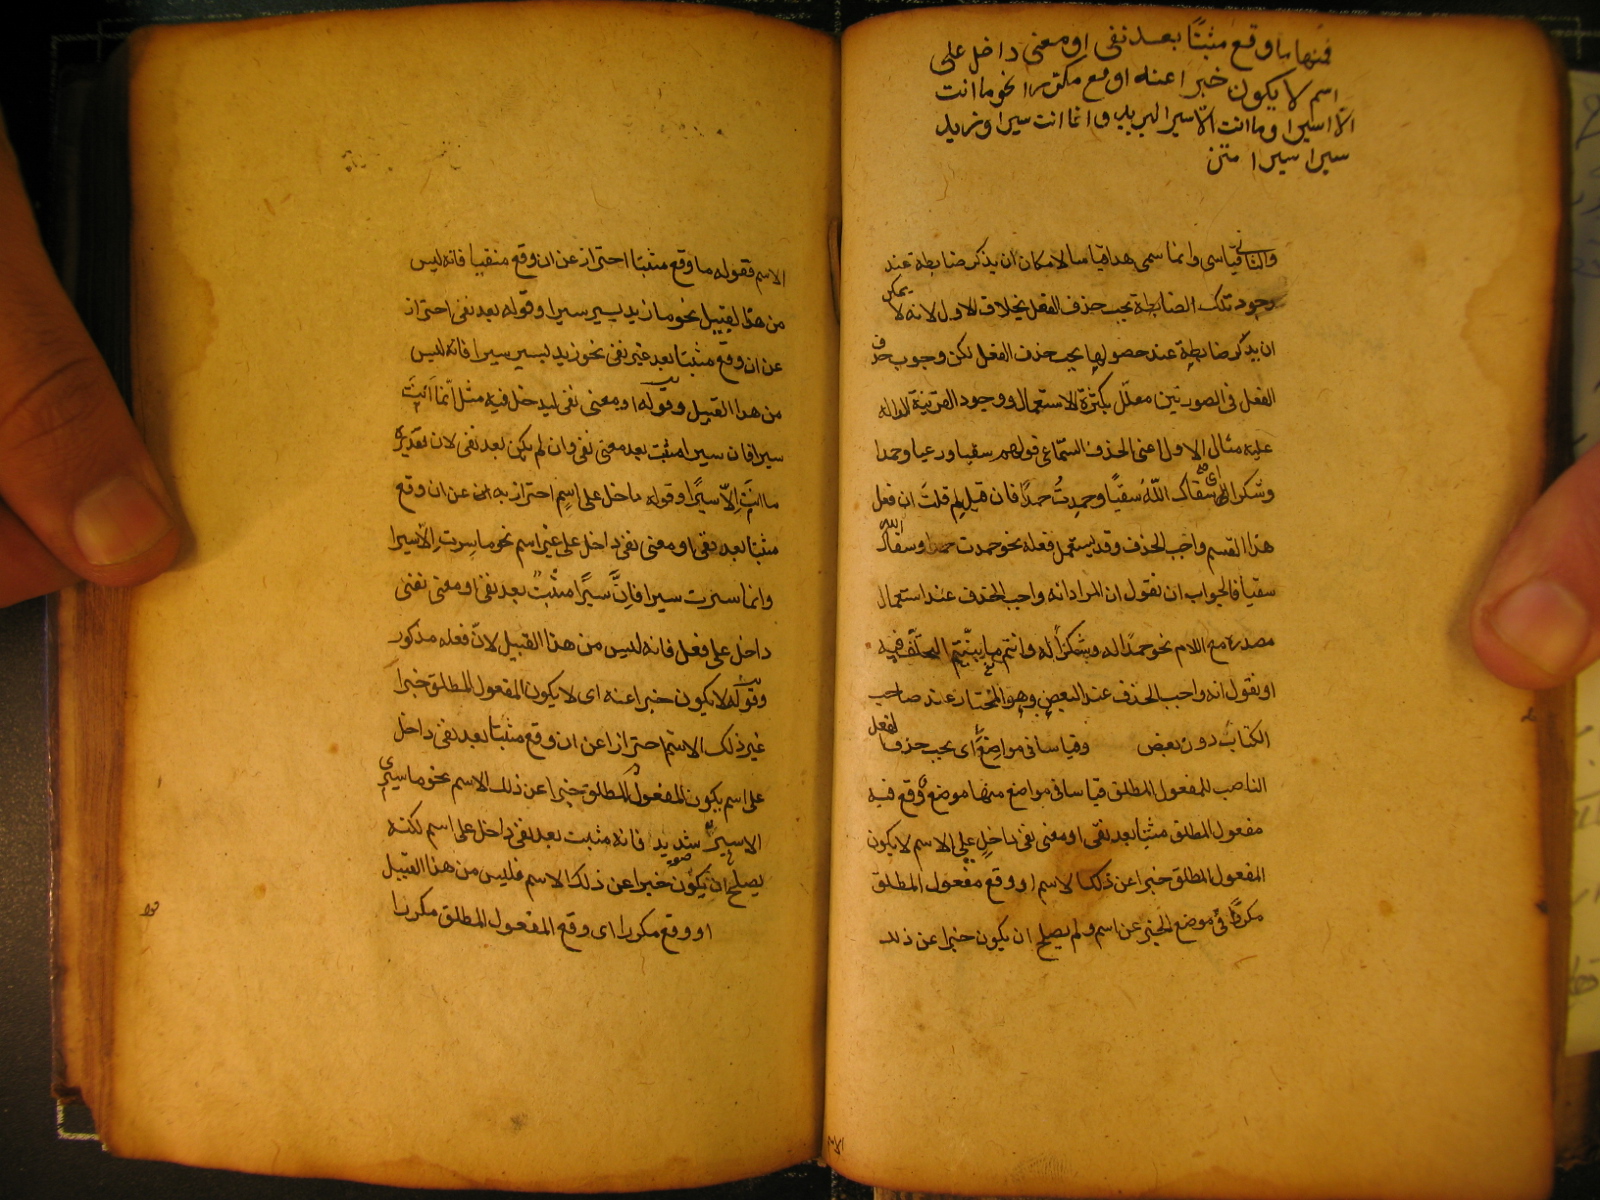 فمنها ما وقع مثبتا بعد نفى او معنى داخل على
اسم لا يكون خبرا عنه او وقع مكررا نحو ما انت
الا سيرا وما انت الا سير البريد وانما انت سيرا وزيد
سيرا سيرا متن
والثانى قياسى وانما سمى هذا قياسا لامكان ان يذكر ضابطة عند
وجود تلك الضابطة يجب حذف الفعل بخلاف الاول لانه لا يمكن
ان يذكر ضابطة عند حصولها يجب حذف الفعل لكن وجوب حذف
الفعل فى الصورتين معلل بكثرة الاستعمال ووجود القرينة الدالة
عليه مثال الاول اعنى الحذف السماعى قولهم سقيا ورعيا وحمدا
وشكرا اى سقاك الله سقيا وحمدت حمدا فان قيل لم قلت ان فعل
هذا القسم واجب الحذف وقد يستعمل فعله نحو حمدت حمدا وسقاك الله
سقيا فالجواب ان نقول ان المراد انه واجب الحذف عند استعمال
مصدره مع اللام نحو حمدا له وشكرا له وانتم ما بينتم
او نقول انه واجب الحذف عند البعض وهو المختار عند صاحب
الكتاب دون بعض وقياسا فى مواضع اى يجب حذف الفعل
الناصب للمفعول المطلق قياسا فى مواضع منها موضع وقع فيه
مفعول المطلق مثبتا بعد نفى او معنى نفى داخل على الاسم لا يكون
المفعول المطلق خبرا عن ذلك الاسم او وقع مفعول المطلق
مكررا فى موضع الخبر عن اسم ولم يصلح ان يكون خبرا عن ذلك
الاسم
الاسم فقوله ما وقع مثبتا احتراز عن ان وقع منفيا فانه ليس
من هذا القبيل نحو ما زيد يسير سيرا وقوله بعد نفى احتراز
عن ان وقع مثبتا بعد غير نفى نحو زيد يسير سيرا فانه ليس
من هذا القبيل وقوله او معنى نفى ليدخل فيه مثل انما انت
سيرا فان سيرا مثبت بعد معنى نفى وان لم يكن بعد نفى لان تقديره
ما انت الا سيرا وقوله داخل على اسم احتراز به عن ان وقع
مثبتا بعد نفى او معنى نفى داخل على غير اسم نحو ما سرت الا سيرا
وانما سرت سيرا فان سيرا مثبت بعد نفى او معنى نفى
داخل على فعل فانه ليس من هذا القبيل لان فعله مذكور
وقوله لا يكون خبرا عنه اى لا يكون المفعول المطلق خبرا
عن ذلك الاسم احترازا عن ان وقع مثبتا بعد نفى داخل
على اسم يكون المفعول المطلق خبرا عن ذلك الاسم نحو ما سيرى
الا سير شديد فانه مثبت بعد نفى داخل على اسم لكنه
يصلح ان يكون خبرا عن ذلك الاسم فليس من هذا القبيل
او وقع مكررا اى وقع المفعول المطلق مكررا